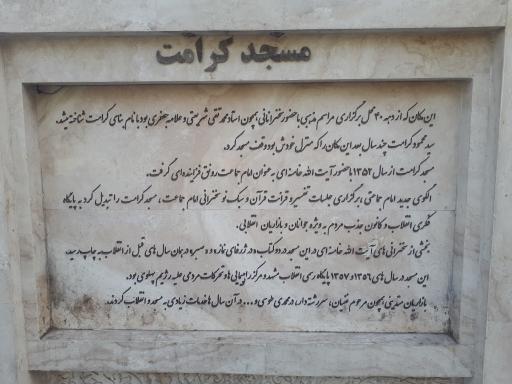 مسجد کرامت
این مکان که از دهه ۳۰ محل برگزاری مراسم مذهبی با حضور سخنرانانی همچون استاد محمد تقی شریعتی و علامه جعفری بود با نام بنای کرامت شناخته میشد.
سید محمود کرامت چند سال بعد این مکان را که منزل خودش بود وقف مسجد کرد.
مسجد کرامت از سال ۱۳۵۲ با حضور آیت الله خامنه ای به عنوان امام جماعت رونق فزاینده ای گرفت.
الگوی جدید امام جماعتی، برگزاری جلسات تفسیر و قرائت قرآن و سبک نو سخنرانی امام جماعت، مسجد کرامت را تبدیل کرد به پایگاه
فکری انقلاب و کانون جذب مردم به ویژه جوانان و بازاریان انقلابی.
بخشی از سخنرانی های آیت الله خامنه ای در این مسجد در دو کتاب و در ژرفای نماز و و صبر در همان سال های قبل از انقلاب به چاپ رسید.
این مسجد در سال های ۱۳۵۶ و ۱۳۵۷ پایگاه رسمی انقلاب مشهد و مرکز راهپیمایی ها و تحرکات مردمی علیه رژیم پهلوی بود.
بازاریان متدینی همچون مرحوم غنیان، سررشته دار، در محمدی طوسی و ... در آن سال ها خدمات زیادی به مسجد و انقلاب کردند.